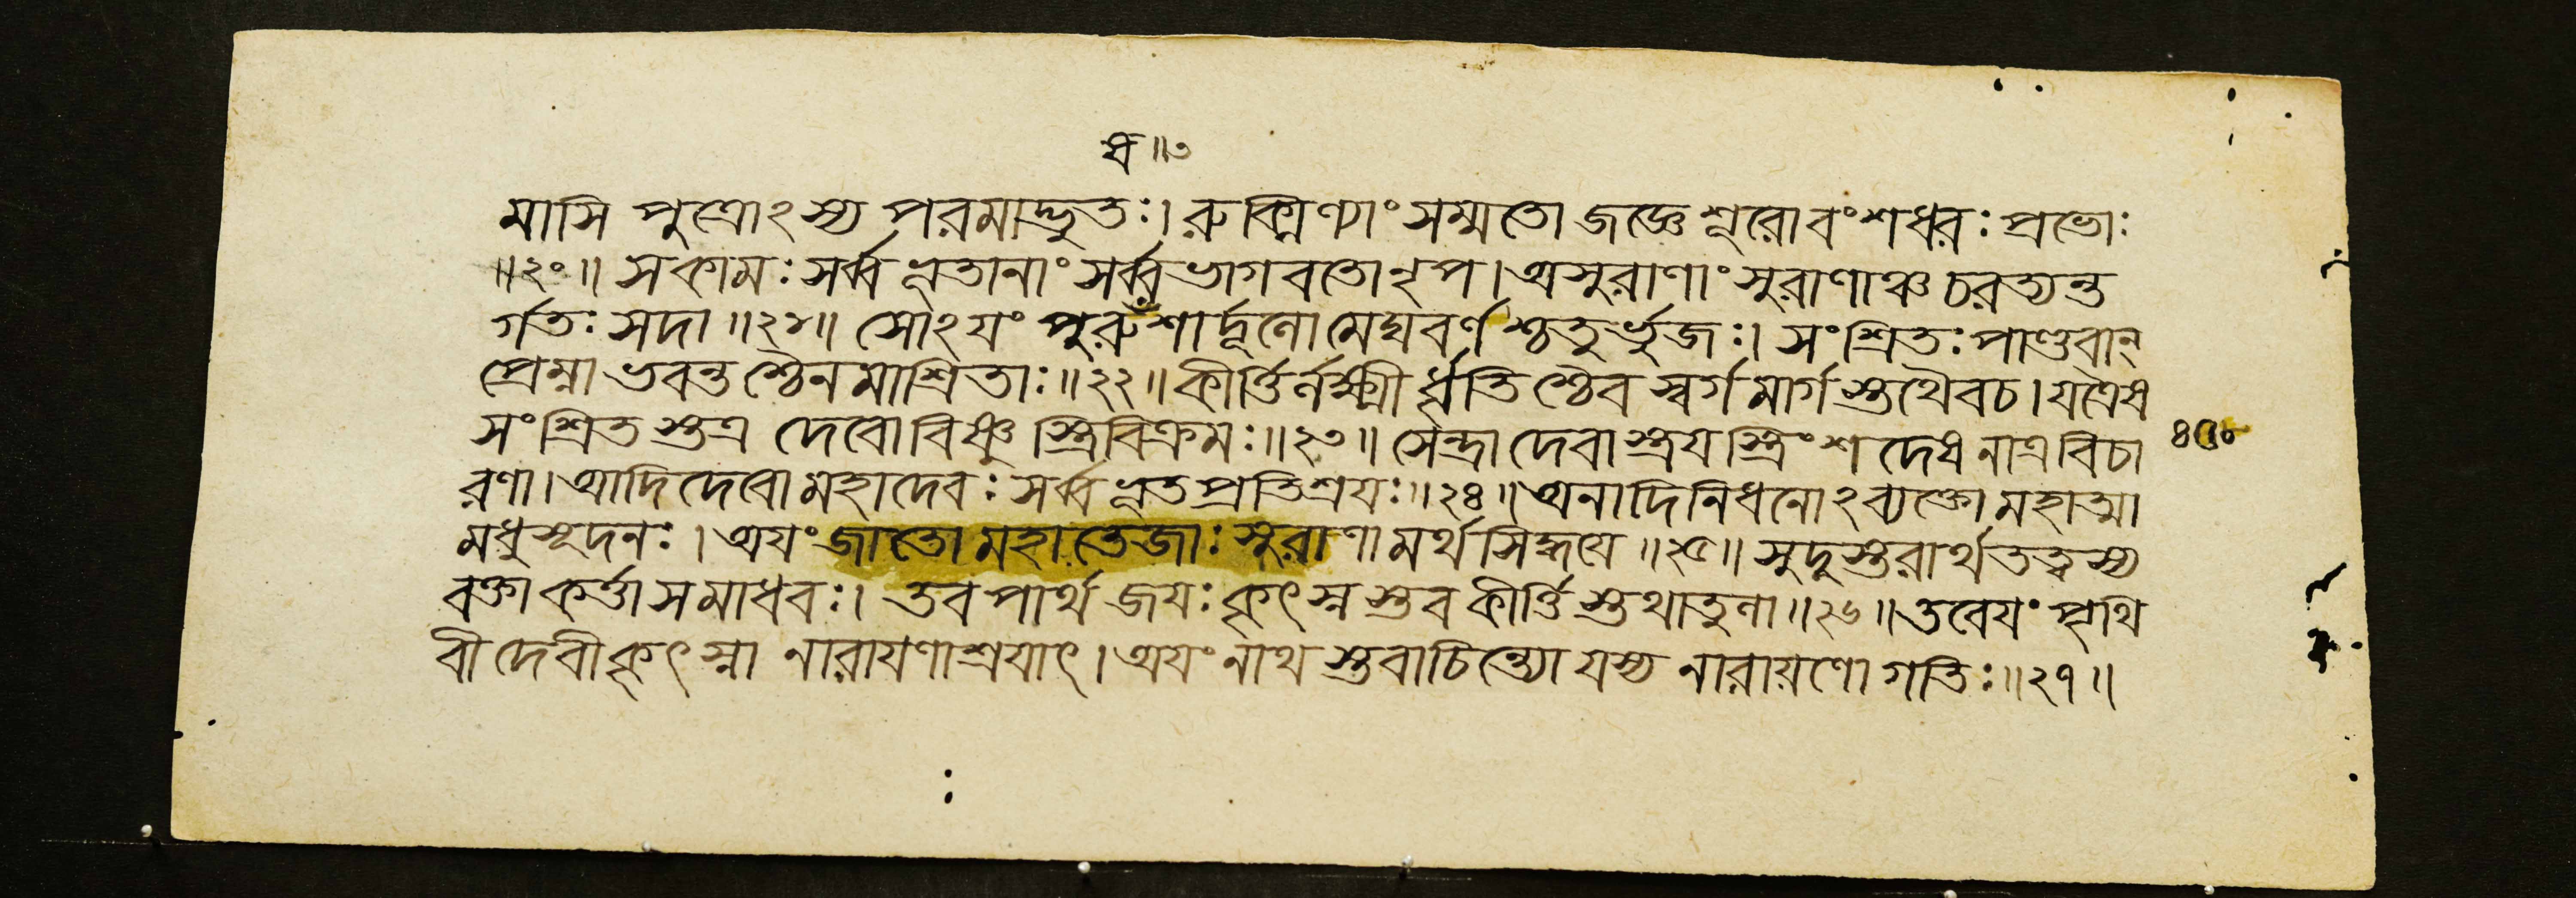 ষ॥৩
মাসি পুত্রোঽস্য পরমাদ্ভুতঃ। রুক্মিণ্যাং সম্মতো জজ্ঞে শূরোবংশধরঃ প্রভোঃ
॥২০॥ সকামঃ সর্ব্বভূতানাং সর্ব্বভাগবতোনৃপ। অসুরাণাং সুরাণাঞ্চ চরত্যন্ত
র্গতঃ সদা॥২১॥ সোঽযং পুরুষশার্দ্দূলো মেঘবর্ণশ্চতুর্ভুজঃ। সংশ্রিতঃ পাণ্ডবান্
প্রেম্না ভবন্তশ্চৈনমাশ্রিতাঃ॥২২॥ কীর্ত্তির্লক্ষ্মীর্ধৃতিশ্চৈব স্বর্গমার্গস্তথৈবচ। যত্রৈষ
সংশ্রিতস্তত্র দেবোবিষ্ণুস্ত্রিবিক্রমঃ॥২৩॥ সেন্দ্রা দেবাস্ত্রযস্ত্রিংশদেষ নাত্র বিচা ৪৫০
রণা। আদিদেবো মহাদেবঃ সর্ব্বভূতপ্রতিশ্রযঃ॥২৪॥ অনাদিনিধনোঽব্যক্তো মহাত্মা
মধুসূদনঃ। অযং জাতো মহাতেজাঃ সুরাণামর্থসিদ্ধযে॥২৫॥ সুদুস্তরার্থতত্ত্বস্য
বক্তা কর্ত্তা সমাধবঃ। তব পার্থ জযঃ কৃৎস্নস্তব কীর্ত্তিস্তথাতুলা॥২৬॥ তবেযং পৃথি
বী দেবী কৃৎস্না নারাযণাশ্রযাৎ। অযং নাথস্তবাচিন্ত্যো যস্য নারায়ণো গতিঃ॥২৭॥